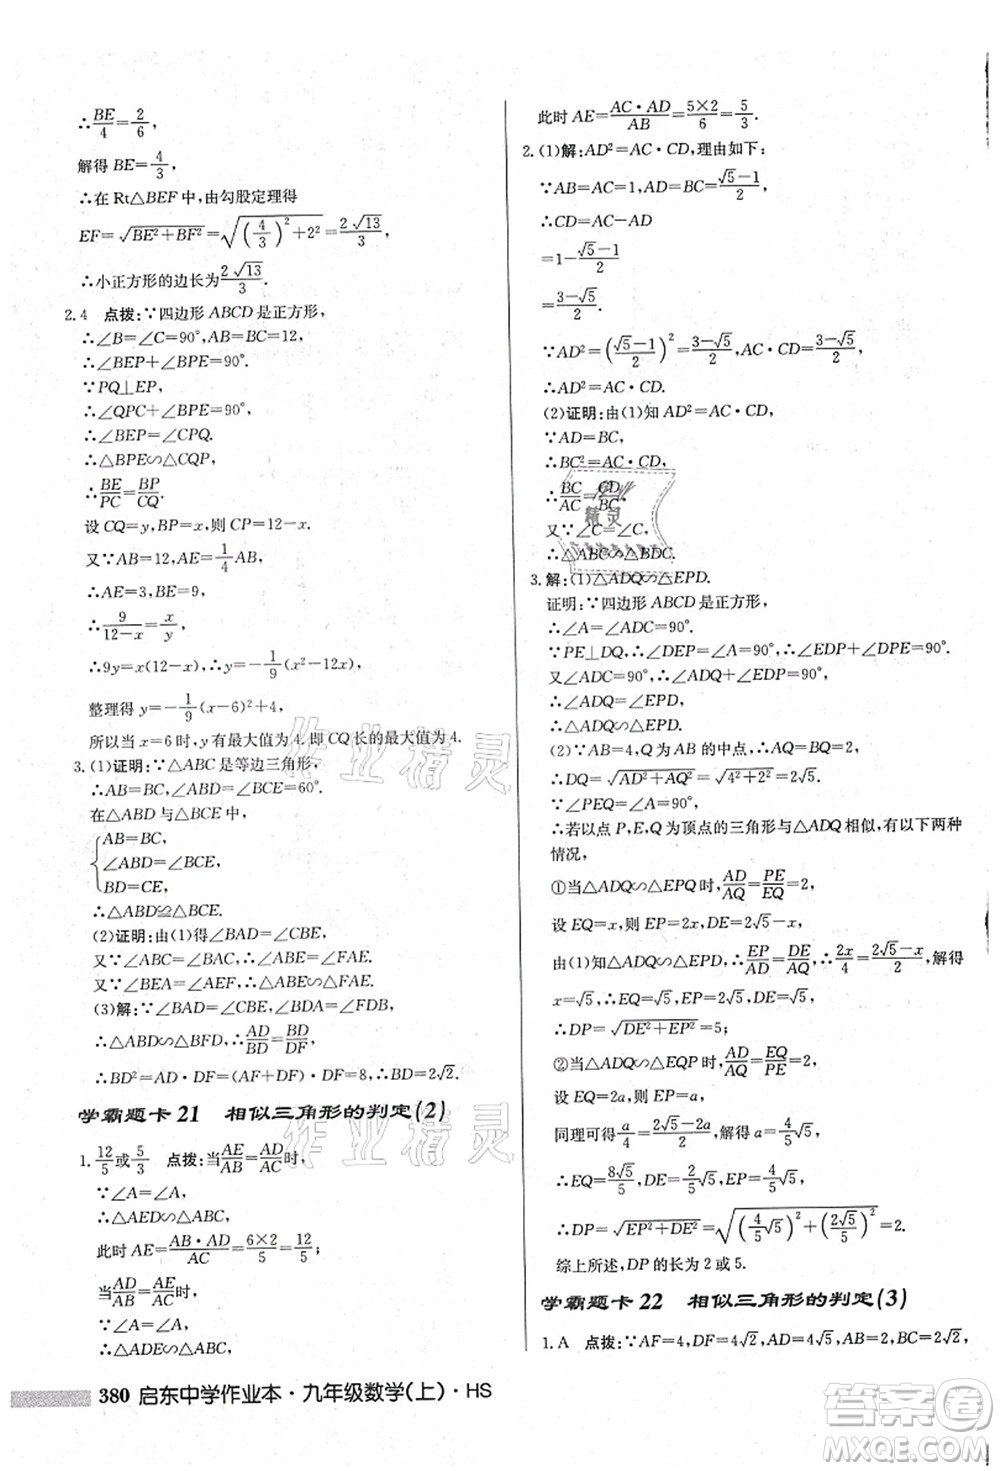 ∴BE/4=2/6,
解得 BE=4/3,
∴在 Rt△BEF 中,由勾股定理得
EF=√(BE²+BF²)=√((4/3)²+2²)=2√13/3.
∴小正方形的边长为2√13/3.
2.4 点拨:∵四边形 ABCD 是正方形,
∴∠B=∠C=90°,AB=BC=12,
∴∠BEP+∠BPE=90°.
∵PQ⊥EP,
∴∠QPC+∠BPE=90°,
∴∠BEP=∠CPQ.
∴△BPE∽△CQP.
∴BE/PC=BP/CQ.
设 CQ=y,BP=x,则 CP=12-x.
又∵AB=12,AE=1/4AB,
∴AE=3,BE=9,
∴9/(12-x)=x/y,
∴9y=x(12-x),y=-1/9(x²-12x),
整理得 y=-1/9(x-6)²+4,
所以当 x=6时,y 有最大值为 4.即 CQ长的最大值为 4.
3.(1)证明:∵△ABC 是等边三角形,
∴AB=BC,∠ABD=∠BCE=60°.
在△ABD 与△BCE 中,
{AB=BC,
∠ABD=∠BCE,
BD=CE,
∴△ABD≌△BCE.
(2)证明:由(1)得∠BAD=∠CBE,
又∵∠ABC=∠BAC,∴∠ABE=∠EAF.
又∵∠BEA=∠AEF,∴△AEF∽△BEA.
(3)解:∵∠BAD=∠CBE,∠BDA=∠FDB,
∴△ABD∽△BFD,∴AD/BD=BD/DF,
∴BD²=AD·DF=(AF+DF)·DF=8,∴BD=2√2.
学霸题卡 21 相似三角形的判定(2)
1.12/5或5/3 点拨:当AE/AB=AD/AC时,
∵∠A=∠A,
∴△AED∽△ABC,
此时 AE=AB·AD/AC=6×2/5=12/5;
当AD/AB=AE/AC时,
∵∠A=∠A,
∴△ADE∽△ABC,
此时 AE=AC·AD/AB=5×2/6=5/3.
2.(1)解:AD²=AC·CD,理由如下:
∵AB=AC=1,AD=BC=(√5-1)/2,
∴CD=AC-AD
=1-(√5-1)/2
=(3-√5)/2.
∵AD²=((√5-1)/2)²=(3-√5)/2,AC·CD=(3-√5)/2,
∴AD²=AC·CD.
(2)证明:由(1)知 AD²=AC·CD,
∵AD=BC,
∴BC²=AC·CD,
∴BC/AC=CD/BC.
又∵∠C=∠C,
∴△ABC∽△BDC.
3.解:(1)△ADQ∽△EPD.
证明:∵四边形 ABCD 是正方形,
∴∠A=∠ADC=90°.
∵PE⊥DQ,∴∠DEP=∠A=90°,
又∠ADQ+∠EDP=90°,∠EDP+∠DPE=90°,
∴∠ADQ=∠EPD,
∴△ADQ∽△EPD.
(2)∵AB=4,Q 为 AB 的中点,
∴DQ=√(AD²+AQ²)=√(4²+2²)=2√5.
∵∠PEQ=∠A=90°,
∴若以点 P,E,Q 为顶点的三角形与△ADQ 相似,有以下两种
情况,
①当△ADQ∽△EPQ 时,AD/AQ=PE/EQ=2,
设 EQ=x,则 EP=2x,DE=2√5-x,
由(1)知△ADQ∽△EPD,∴EP/AD=DE/AQ,∴2x/4=(2√5-x)/2,解得
x=√5,
∴DP=√(DE²+EP²)=5;
②当△ADQ∽△EQP 时,AD/AQ=EQ/EP=2,
设 EQ=2a,则 EP=a,
同理可得a/4=(2√5-2a)/2,解得 a=4√5/5,
∴EQ=8√5/5,DE=2√5/5,
∴DP=√(EP²+DE²)=√((4/5√5)²+(2√5/5)²)=2.
综上所述,DP 的长为 2 或 5.
学霸题卡 22 相似三角形的判定(3)
1.A 点拨:∵AF=4,DF=4√2,AB=2,BC=2√2,
380 启东中学作业本·九年级数学(上)·HS
作业精灵
作业精灵
精灵
答案圈
MXQE.COM